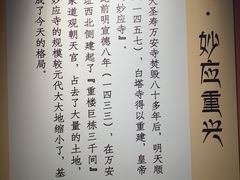 妙应重兴
大圣寿万安寺焚毁八十多年后，明天顺
（一四五七），白塔寺得以重建，皇帝
妙应寺』。
此前明宣德八年（一四三三），在万安
址西北侧建起了『重楼巨栋三千间』
家道观朝天宫，占去了大量的土地，
妙应寺的规模较元代大大地缩小了，基
成了今天的格局。